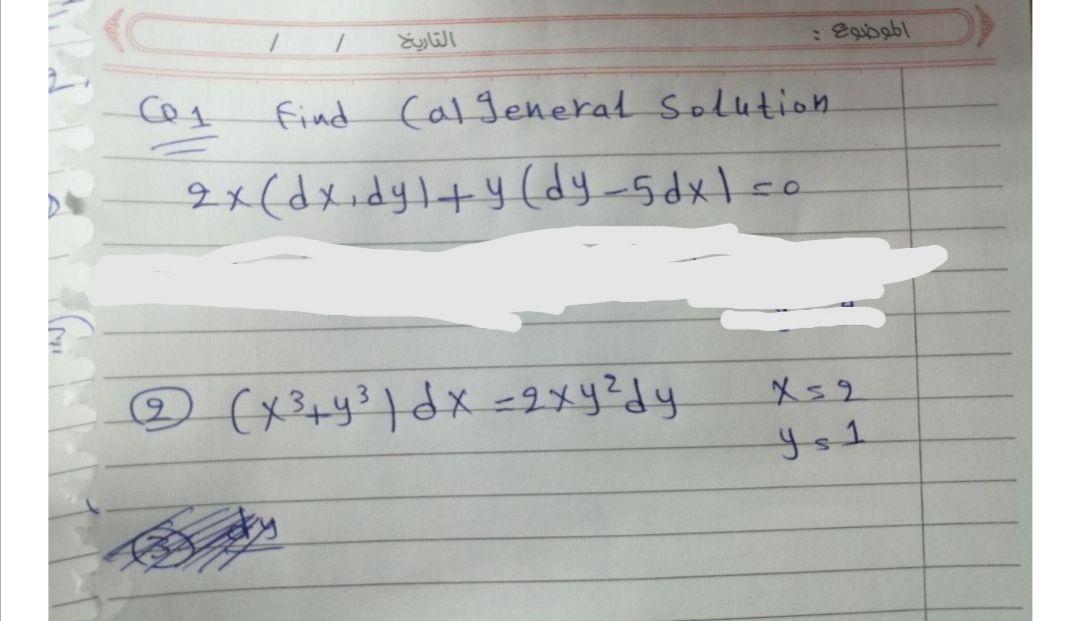 الموضوع :
التاريخ / /
Q1 Find (al general Solution
2x(dx,dy)+y(dy-5dx)=0
② (x³+y³)dx=2xy²dy x=2
y=1